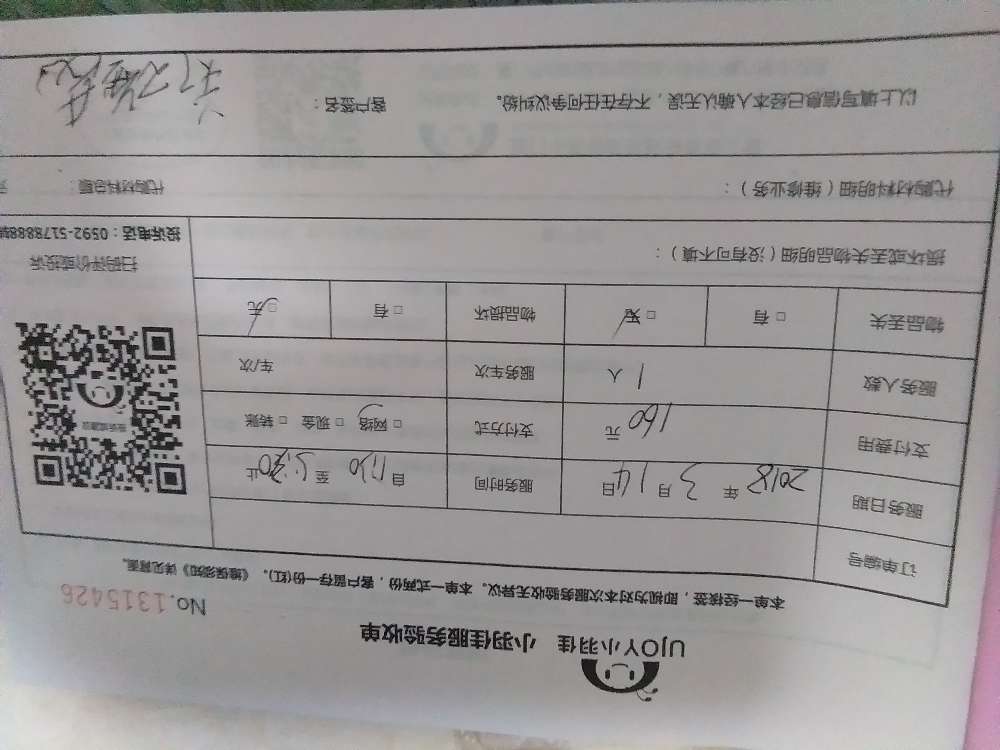 UJOY小羽佳 小羽佳服务验收单
No.1315426
本单一经核签，即视为对本次服务验收无异议。本单一式两份，客户留存一份(红)。《维保须知》详见背面。
订单编号
服务日期 2018 年 3 月 14 日 服务时间 自 至 止
支付费用 160 元 支付方式 □ 网络 □ 现金 □ 转账
服务人数 1 人 服务车次 车/次
物品丢失 □ 有 □ 无 物品损坏 □ 有 □ 无
损坏或丢失物品明细（没有可不填）：
投诉或建议
扫码评价或投诉
投诉电话：0592-5178888转
代购材料明细（维修业务）： 代购材料总额：
以上填写信息已经本人确认无误，不存在任何争议纠纷。 客户签名：